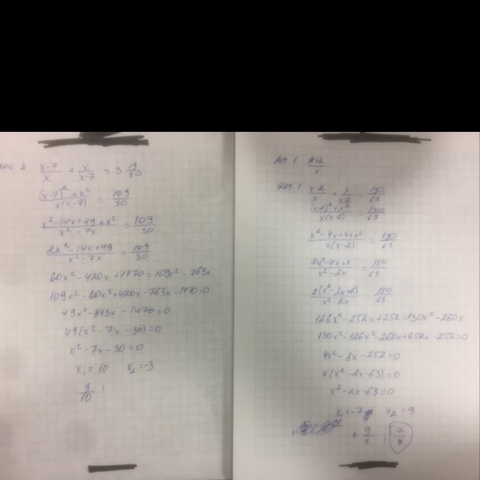 2. (x-7)/x + x/(x-7) = 3 19/30
((x-7)²+x²)/(x(x-7)) = 109/30
(x²-14x+49+x²)/(x²-7x) = 109/30
(2x²-14x+49)/(x²-7x) = 109/30
60x²-420x+1470=109x²-763x
109x²-60x²+420x-763x-1470=0
49x²-343x-1470=0
49(x²-7x-30)=0
x²-7x-30=0
x₁=10 x₂=-3
1
(x-2)/x + x/(x-2) = 130/63
((x-2)²+x²)/(x(x-2)) = 130/63
(x²-4x+4+x²)/(x(x-2)) = 130/63
(2x²-4x+4)/(x²-2x) = 130/63
2(x²-2x+2)/(x²-2x) = 130/63
126x²-252x+252=130x²-260x
130x²-126x²-260x+252x-252=0
4x²-8x-252=0
4(x²-2x-63)=0
x²-2x-63=0
x₁=-7 x₂=9
7/9